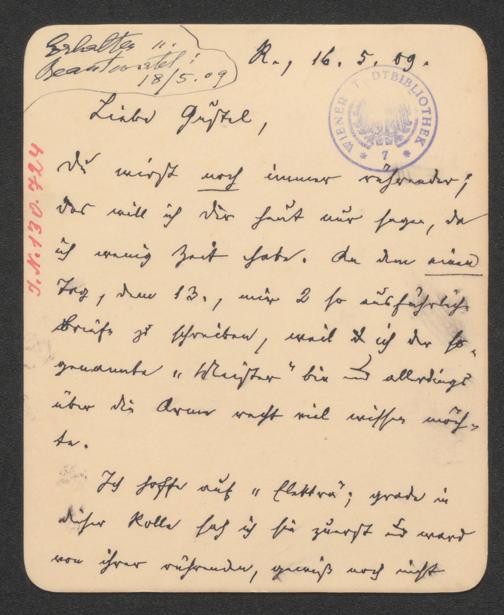 Erhalten u.
Beantwortet:
18/5.09
R., 16. 5. 09.
WIENER STADTBIBLIOTHEK
7
J.N. 130.724
Liebe Gustel,
du wirst noch immer rührender;
das will ich dir heut nur sagen, da
ich wenig Zeit habe. An dem einen
Tag, dem 13., mir 2 so ausführliche
Briefe zu schreiben, weil ich der so-
genannte „Meister" bin und allerdings
über die Arme recht viel wissen möch-
te.
Ich hoffe auf „Elektra"; grade in
dieser Rolle sah ich sie zuerst und ward
von ihrer rührenden, gewiß noch nicht